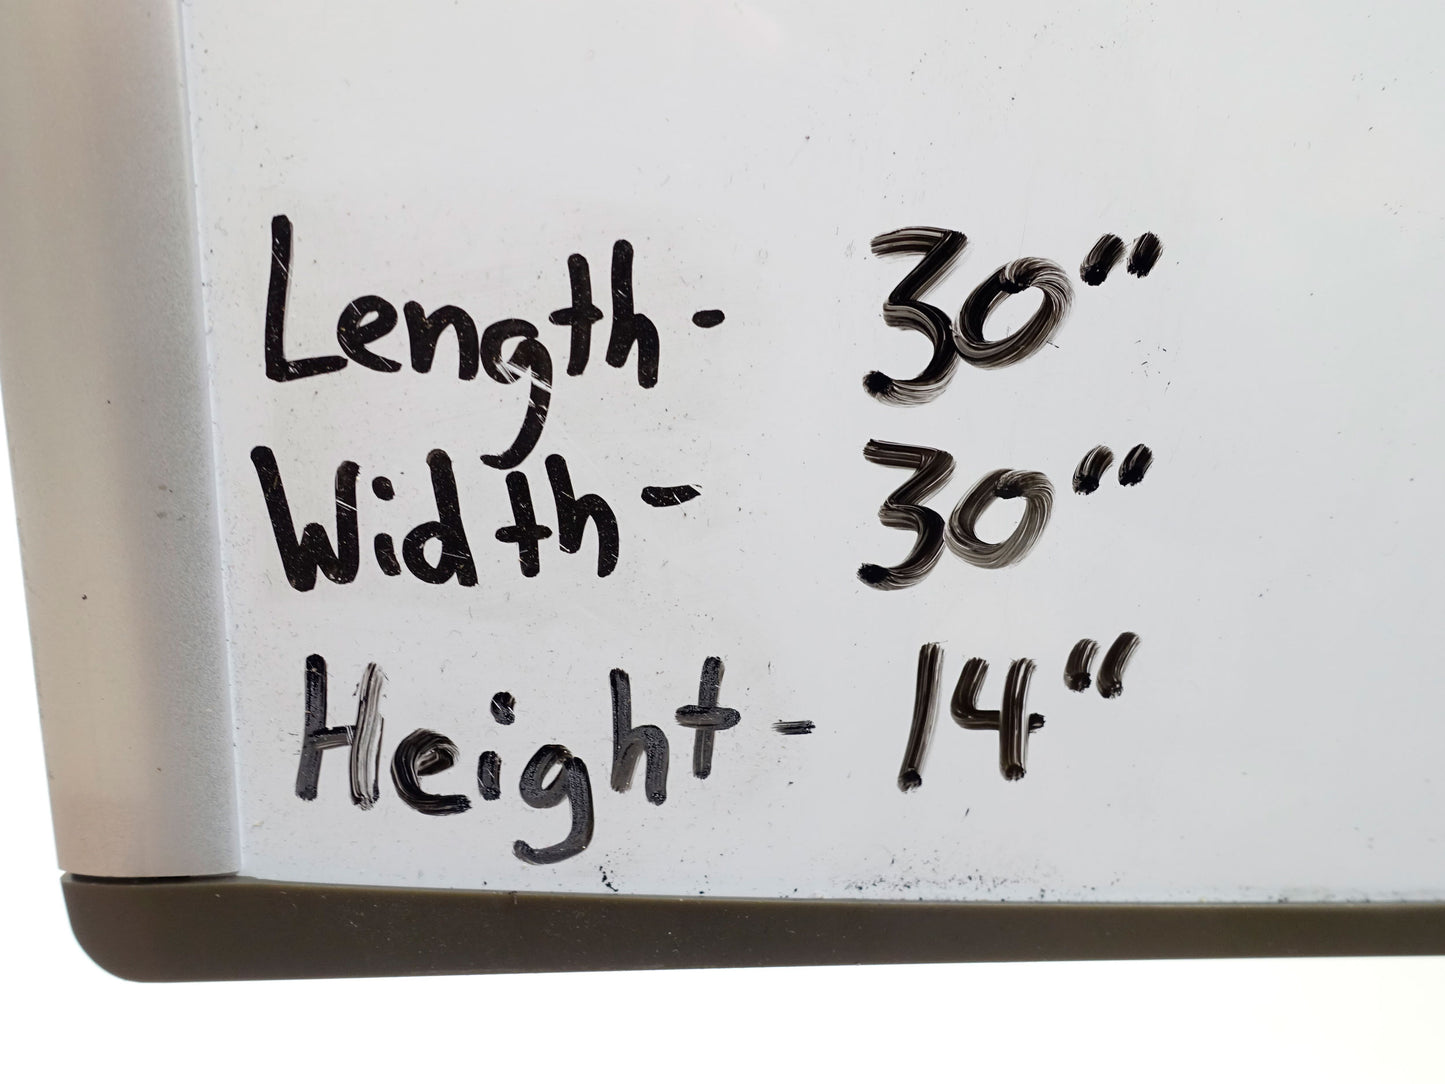 Length - 30"
Width - 30"
Height - 14"